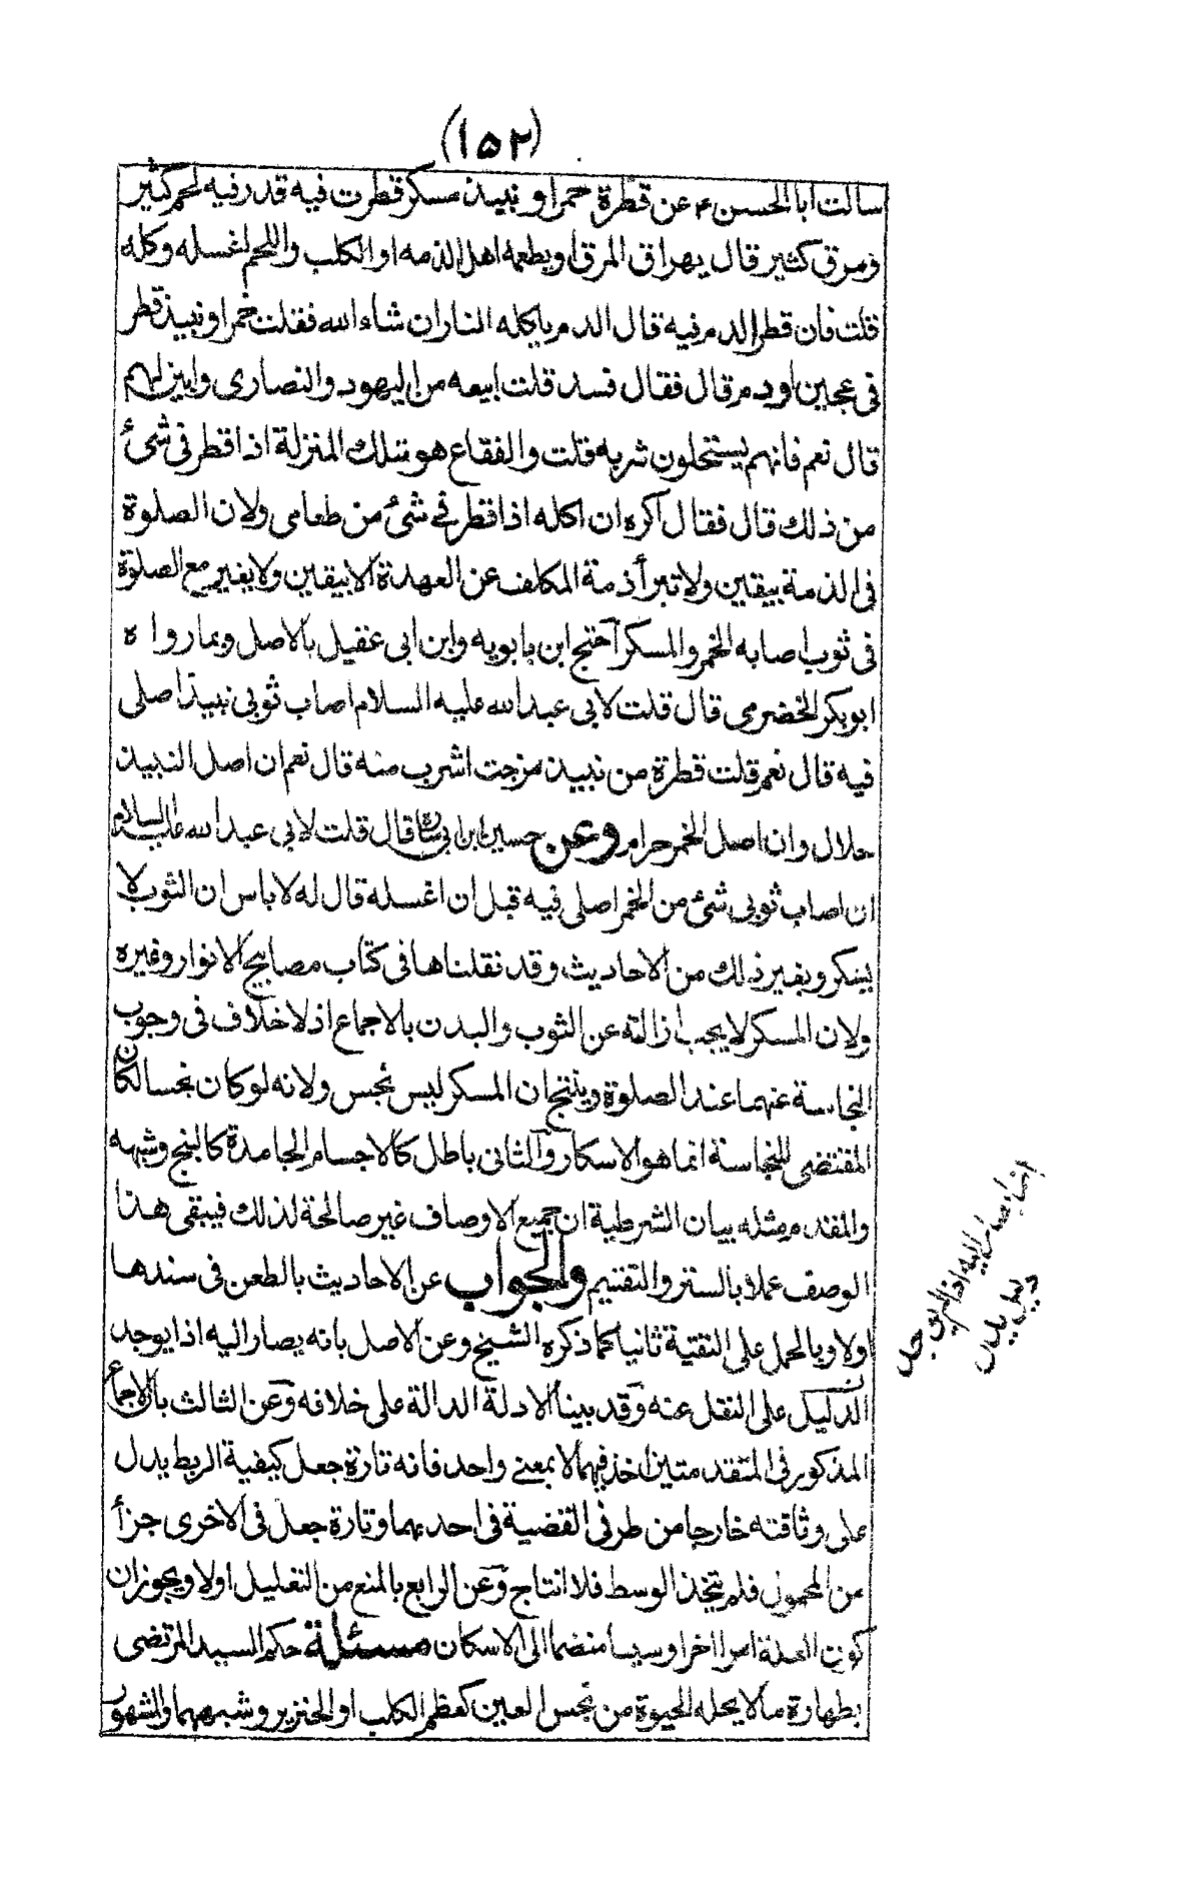 (١٥٢)
سالت ابا الحسن ع عن قطرة خمر او نبيذ مسكر قطرت فيه قدر فيه لحم كثير
ومرق كثير قال يهراق المرق او يطعمه اهل الذمه او الكلب واللحم اغسله وكله
قلت فان قطر الدم فيه قال الدم ياكله النار ان شاء الله فقلت خمر او نبيذ قطر
فى عجين او دم قال فقال فسد قلت ابيعه من اليهود والنصارى وابين لهم
قال نعم فانهم يستحلون شربه قلت والفقاع هو بتلك المنزلة اذا قطر فى شئ
من ذلك قال فقال اكره ان اكله اذا قطر فى شئ من طعامى ولان الصلوة
فى الذمة بيقين ولا تبرأ ذمة المكلف عن العهدة الا بيقين ولا يقين مع الصلوة
فى ثوب اصابه الخمر والمسكر آحتج ابن بابويه وابن ابى عقيل بالاصل وبما رواه
ابو بكر الحضرمى قال قلت لابى عبد الله عليه السلام اصاب ثوبى نبيذ اصلى
فيه قال نعم قلت قطرة من نبيذ مزجت اشرب منه قال نعم ان اصل النبيذ
حلال وان اصل الخمر حرام وعن حسين ابن ابى سارة قال قلت لابى عبد الله عليه السلام
ان اصاب ثوبى شئ من الخمر اصلى فيه قبل ان اغسله قال له لا باس ان الثوب لا
يسكر وبغير ذلك من الاحاديث وقد نقلناها فى كتاب مصابيح الانوار وغيره
ولان المسكر لا يجب ازالته عن الثوب والبدن بالاجماع اذ لا خلاف فى وجوب
النجاسة عنهما عند الصلوة وينتج ان المسكر ليس نجس ولانه لو كان نجسا لكان
المقتضى للنجاسة انما هو الاسكار وآلثانى باطل كالاجسام الجامدة كالبنج وشبهه
والمقدم مثله بيان الشرطية ان جميع الاوصاف غير صالحة لذلك فيبقى هذا
الوصف عملا بالستر والتقسيم والجواب عن الاحاديث بالطعن فى سندها
اولا وبالحمل على التقية ثانيا كما ذكره الشيخ وعن الاصل بانه يصار اليه اذا يوجد
الدليل على النقل عنه وقد بينا الادلة الدالة على خلافه وعن الثالث بان الاجماع
المذكور فى المتقدمتين اخذ فيهما لا بمعنى واحد فانه تارة جعل كيفية الربط يدل
على وثاقته خارجا من طرفى القضية فى احديهما وتارة جعل فى الاخرى جزأ
من المحمول فلم يتخذ الوسط فلا انتاج وعن الرابع بالمنع من التعليل اولا ويجوز ان
كون العلة امرا اخر او سببا منضما الى الاسكان مسئلة حكم السيد المرتضى
بطهارة ما لا يحله الحيوة من نجس العين كعظم الكلب او الخنزير وشبههما والمشهور
انما يصار اليه اذا لم يوجد
دليل يدل